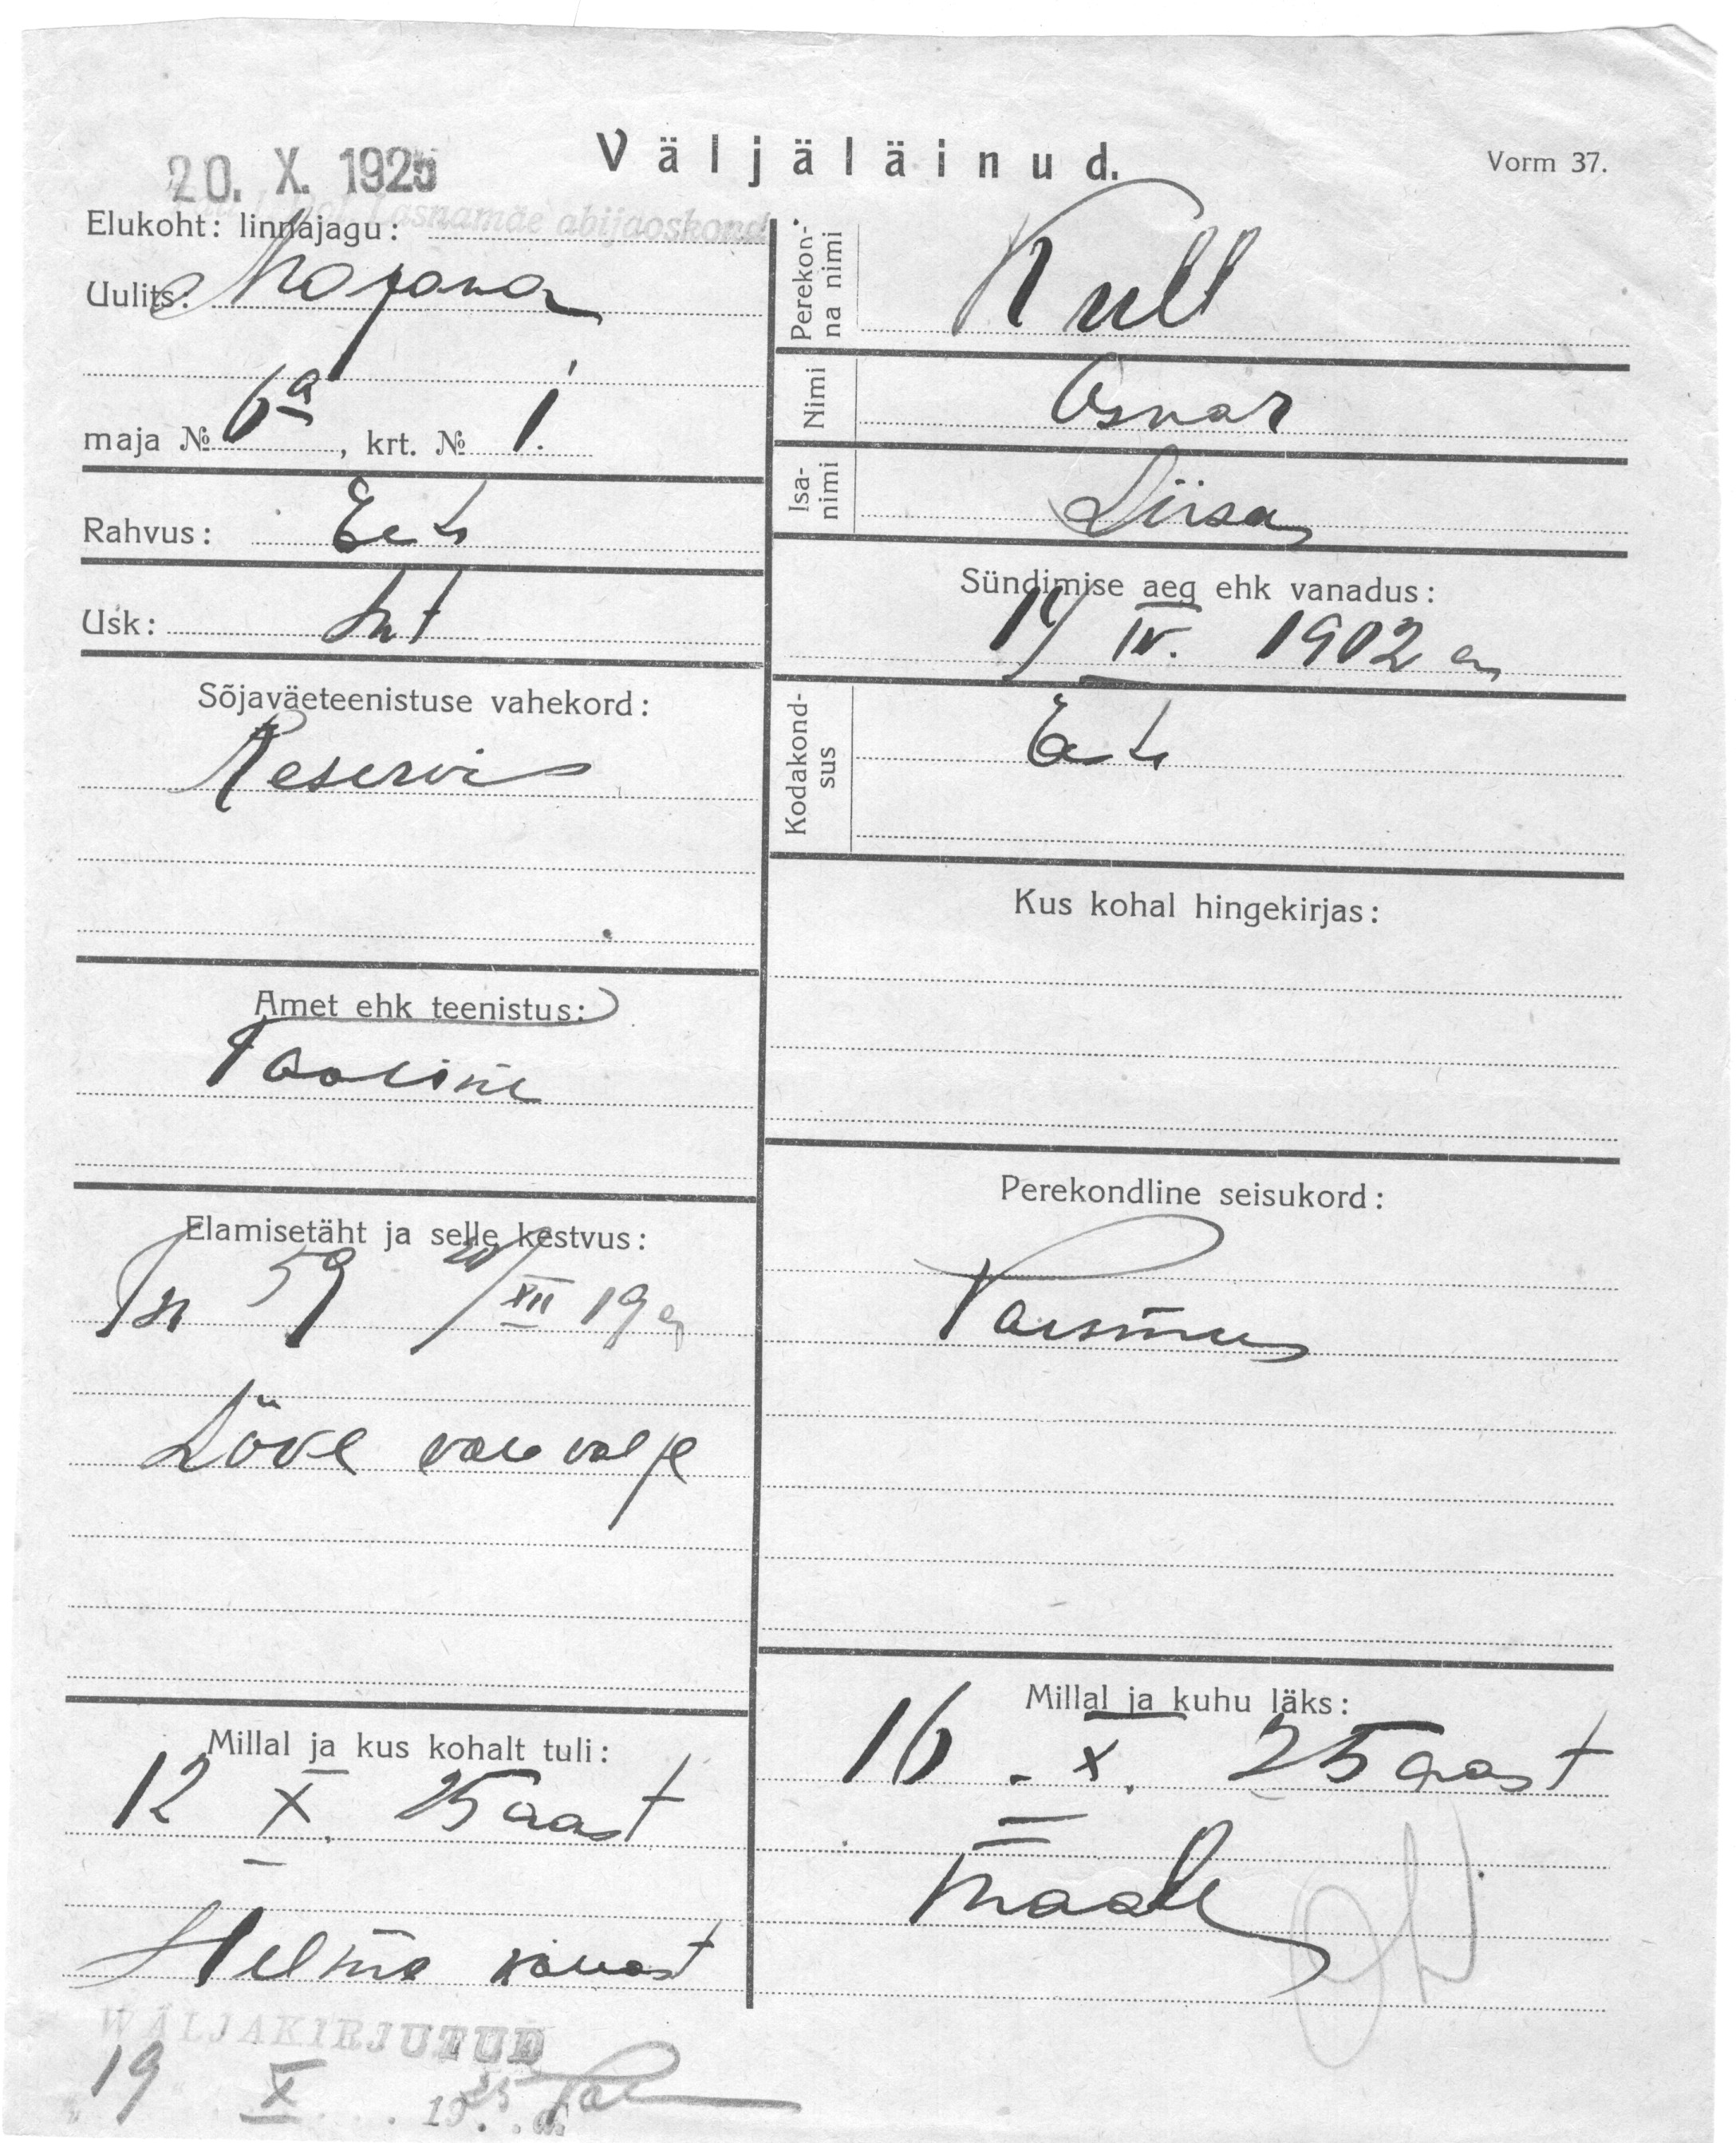 20. X. 1925
Väljaläinud.
Vorm 37.
Elukoht: linnajagu: Lasnamäe abijaoskond
Uulits: Majaka
maja № 6a, krt. № 1.
Rahvus: Eesti
Usk: Lut
Sõjaväeteenistuse vahekord:
Reservis
Amet ehk teenistus:
Tööline
Elamisetäht ja selle kestvus:
59 20/XII 19
Lõve valla valj
Millal ja kus kohalt tuli:
12 X. 25 aast
Helme vallast
Perekonna nimi
Kull
Nimi
Osvar
Isanimi
Liisa
Sündimise aeg ehk vanadus:
14/IV. 1902 a
Kodakondsus
Eesti
Kus kohal hingekirjas:
Perekondline seisukord:
Poismees
Millal ja kuhu läks:
16. X. 25 aast
maale
WÄLJAKIRJUTUD
19 X 1925 a.